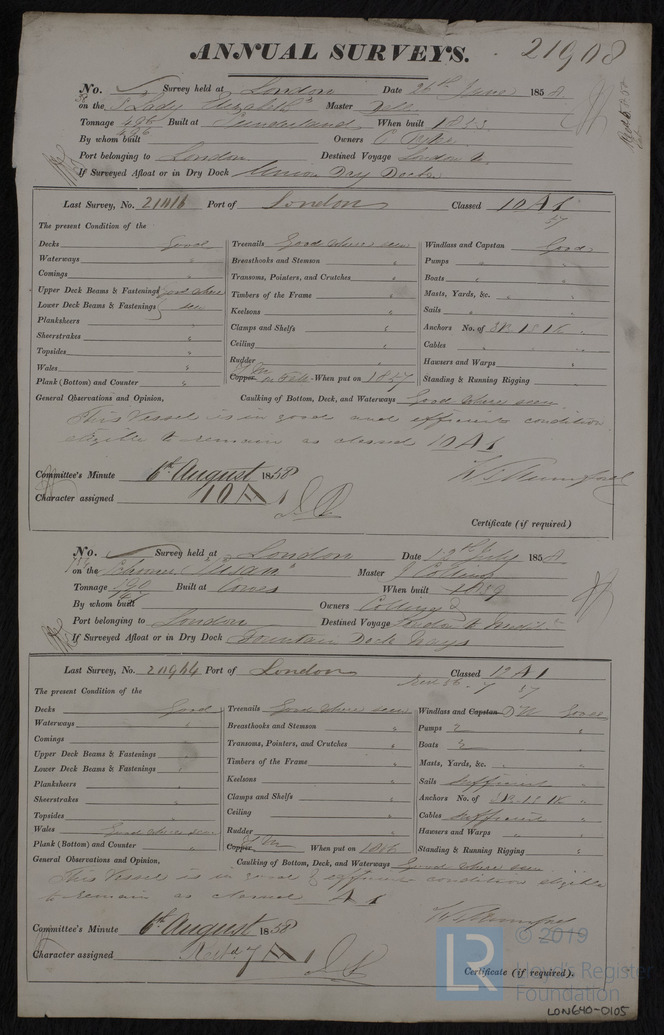 ANNUAL SURVEYS. 21908
No. Survey held at London Date 26th June 1858
on the "Lady Elizabeth" Master
Tonnage 496 Built at Sunderland When built
By whom built 496 Owners
Port belonging to London Destined Voyage London
If Surveyed Afloat or in Dry Dock Union Dry Dock
Last Survey, No. Port of London Classed 10 A 1
57
The present Condition of the
Decks Good
Waterways "
Comings "
Upper Deck Beams & Fastenings good where
Lower Deck Beams & Fastenings seen
Planksheers "
Sheerstrakes "
Topsides "
Wales "
Plank (Bottom) and Counter "
Treenails Good where seen
Breasthooks and Stemson "
Transoms, Pointers, and Crutches "
Timbers of the Frame "
Keelsons "
Clamps and Shelfs "
Ceiling "
Rudder "
Copper When put on 1857
Windlass and Capstan Good
Pumps " "
Boats " "
Masts, Yards, &c. " "
Sails " "
Anchors No. of 3B 1S 1K "
Cables " "
Hawsers and Warps "
Standing & Running Rigging "
General Observations and Opinion, Caulking of Bottom, Deck, and Waterways Good where seen
This Vessel is in good and efficient condition
eligible to remain as classed 10 A 1
Committee's Minute 6th August 1858
Character assigned 10 A 1
Certificate (if required)
No. Survey held at London Date July 1858
on the Schooner "Susan" Master J Collings
Tonnage 190 Built at Cowes When built
By whom built Owners Collings
Port belonging to London Destined Voyage London to
If Surveyed Afloat or in Dry Dock Fountain Dock Ways
Last Survey, No. Port of London Classed A 1
57
The present Condition of the
Decks Good
Waterways "
Comings
Upper Deck Beams & Fastenings "
Lower Deck Beams & Fastenings "
Planksheers "
Sheerstrakes "
Topsides "
Wales Good where seen
Plank (Bottom) and Counter "
Treenails Good where seen
Breasthooks and Stemson "
Transoms, Pointers, and Crutches "
Timbers of the Frame "
Keelsons "
Clamps and Shelfs "
Ceiling "
Rudder "
Copper When put on
Windlass and Capstan Good
Pumps 2 "
Boats "
Masts, Yards, &c. " "
Sails sufficient "
Anchors No. of 3B 1S 1K "
Cables sufficient "
Hawsers and Warps " "
Standing & Running Rigging "
General Observations and Opinion, Caulking of Bottom, Deck, and Waterways Good where seen
This Vessel is in good & efficient condition eligible
to remain as classed A 1
Committee's Minute 6th August 1858
Character assigned A 1
Certificate (if required).
LR © 2019
Lloyd's Register
Foundation
LON640-0105